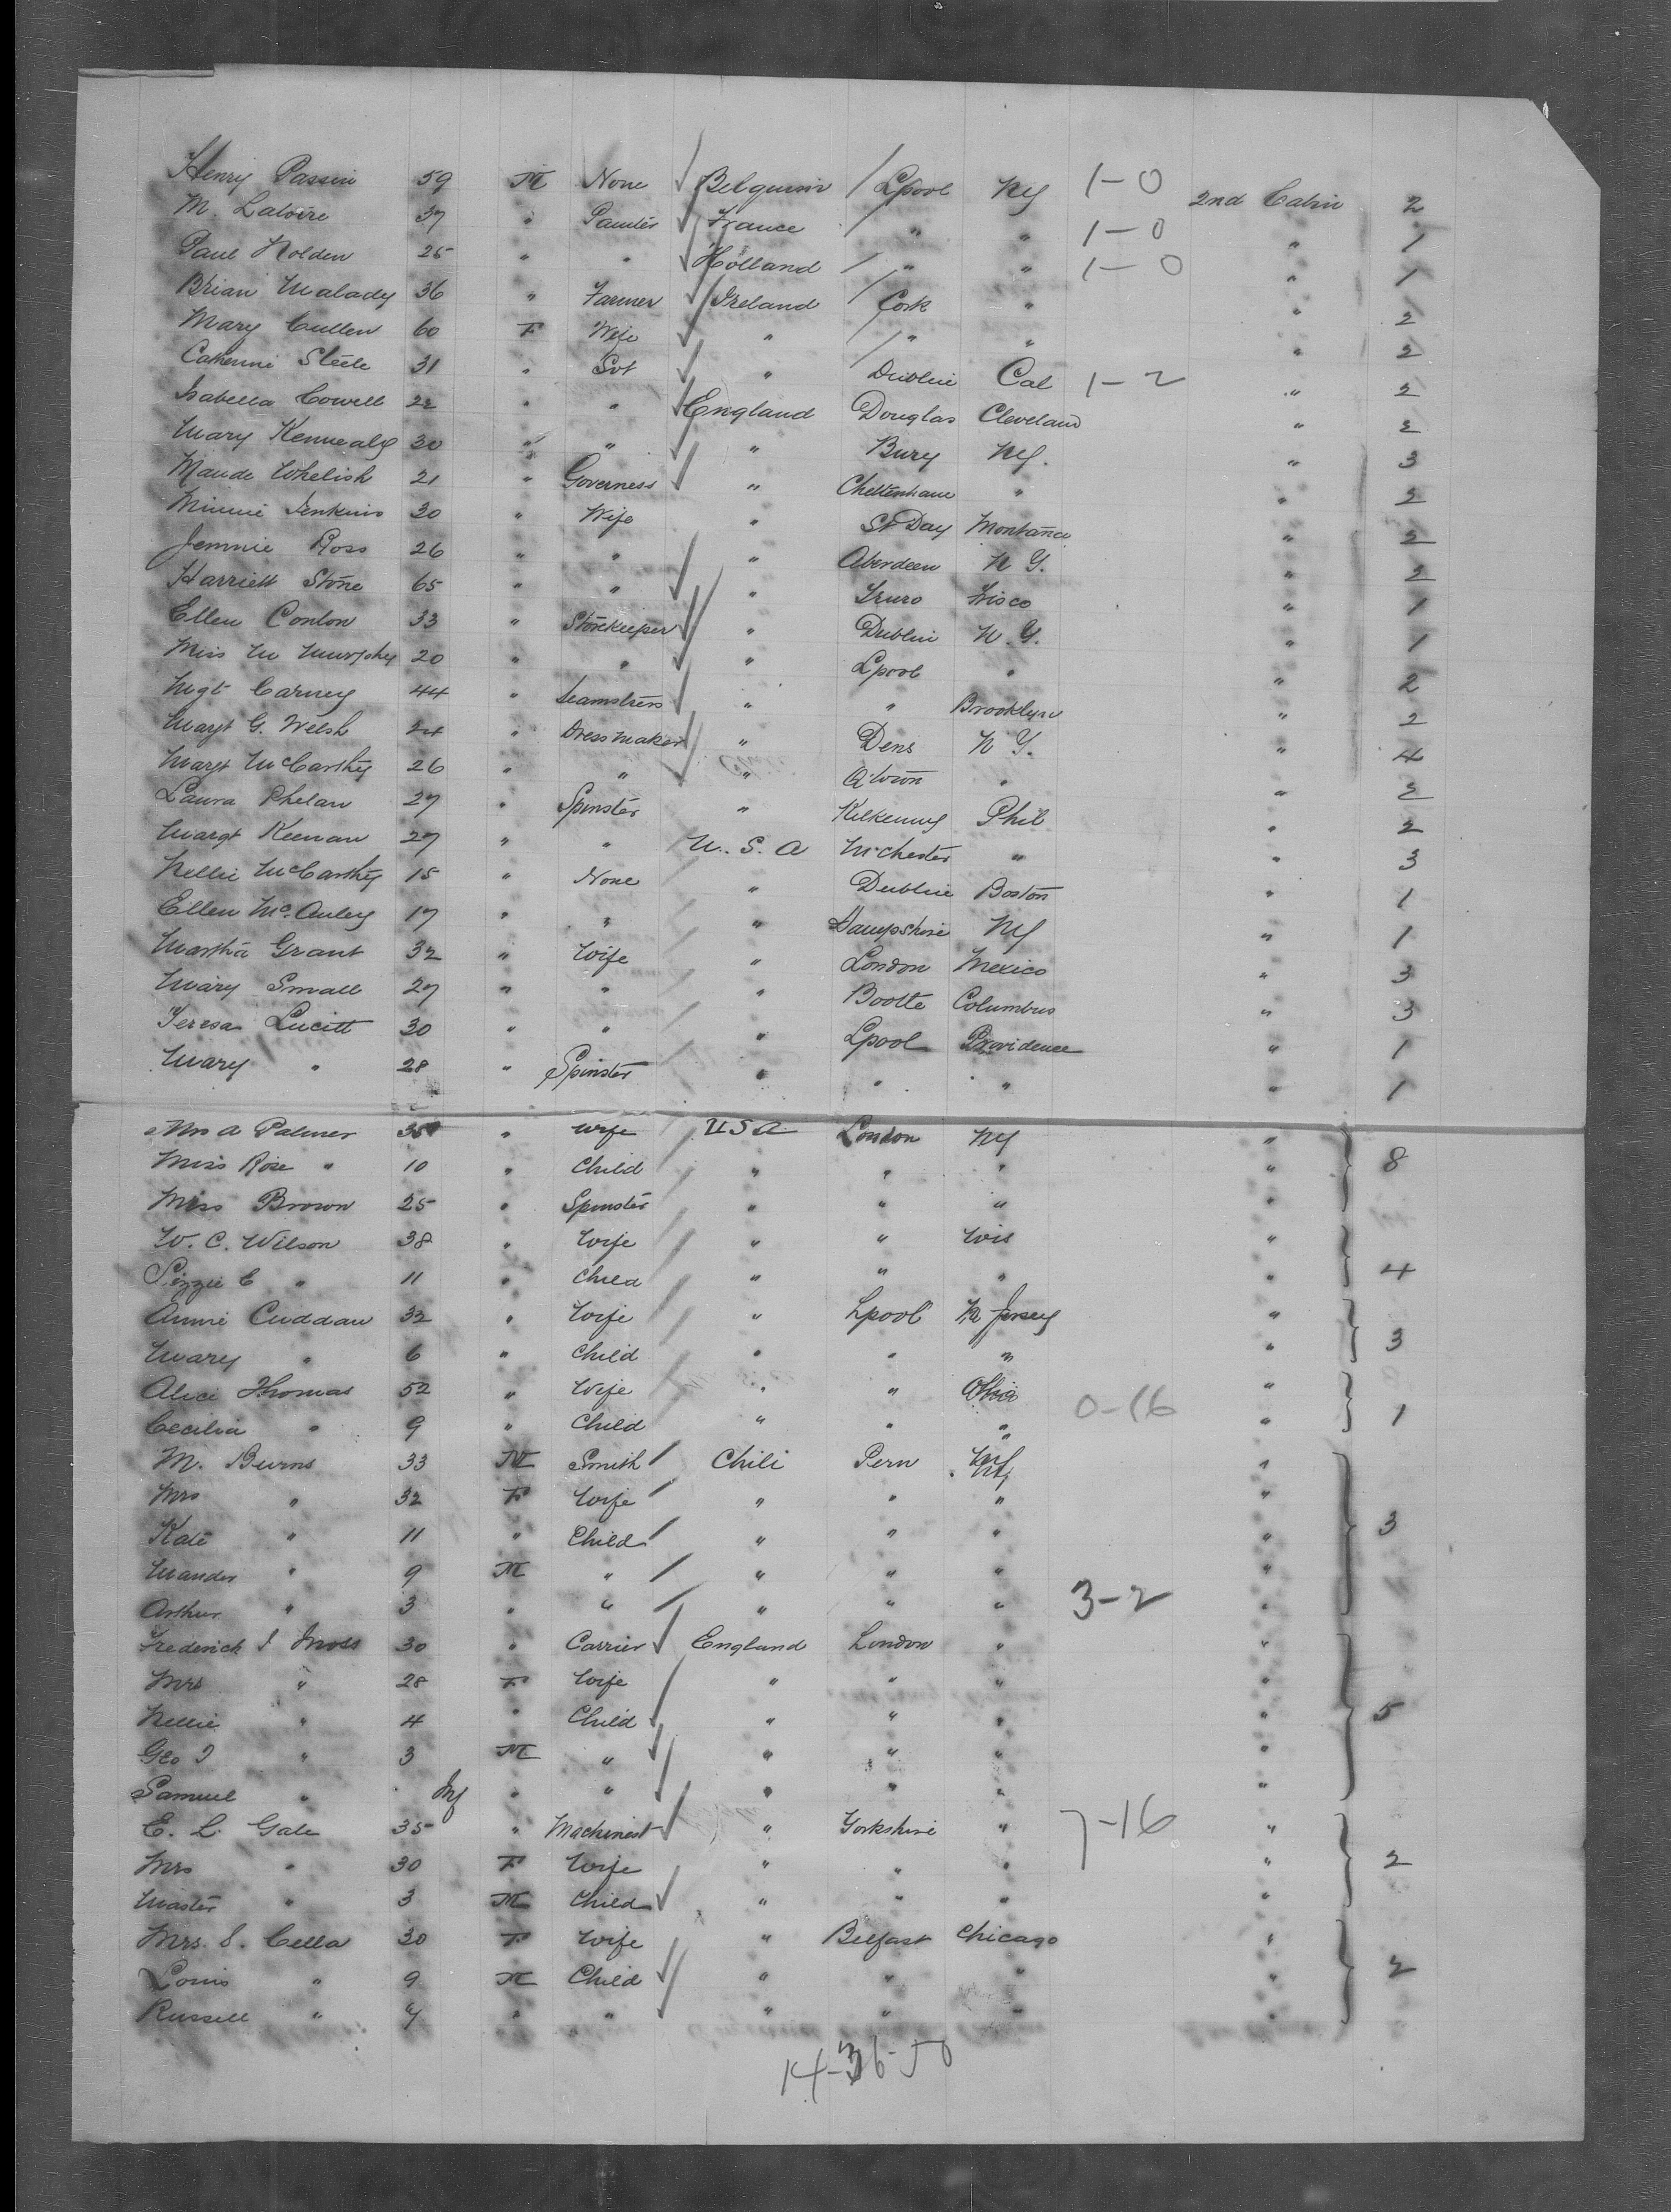 Henry Passin 59 M None Belguim Lpool NY 1-0 2nd Cabin 2
M. Latoire 37 " Painter France " " 1-0 " 1
Paul Nolden 25 " " Holland " " 1-0 " 1
Brian Malady 36 " Farmer Ireland Cork " " 2
Mary Cullen 60 F Wife " " " " 2
Catherine Steele 31 " Svt " Dublin Cal 1-2 " 2
Isabella Cowell 22 " " England Douglas Cleveland " 2
Mary Kennealy 30 " " " Bury NY. " 3
Maude Whelish 21 " Governess " Cheltenham " " 2
Minnie Jenkins 30 " Wife " St Day Montana " 2
Jennie Ross 26 " " " Aberdeen N Y. " 2
Harriett Stone 65 " " " Truro Frisco " 1
Ellen Conlon 33 " Storekeeper " Dublin N. Y. " 1
Miss M Murphy 20 " " " Lpool " " 2
Mgt Carney 44 " Seamstress " " Brooklyn " 2
Margt G. Welsh 24 " Dressmaker " Dens N Y. " 4
Margt McCarthy 26 " " " Q.town " " 2
Laura Phelan 27 " Spinster " Kilkenny Phil " 2
Margt Keenan 27 " " U. S. A Mchester " " 3
Nellie McCarthy 15 " None " Dublin Boston " 1
Ellen McAuley 17 " " " Hampshire NY " 1
Martha Grant 32 " Wife " London Mexico " 3
Mary Small 27 " " " Bootle Columbus " 3
Teresa Lucitt 30 " " " Lpool Providence " 1
Mary " 28 " Spinster " " " " 1
Mrs A Palmer 35 " Wife USA London NY "
Miss Rose " 10 " Child " " " " 8
Miss Brown 25 " Spinster " " " "
W. C. Wilson 38 " Wife " " Wis "
Lizzie C " 11 " Child " " " " 4
Annie Cuddan 32 " Wife " Lpool N Jersey "
Mary " 6 " Child " " " " 3
Alice Thomas 52 " Wife " " Ohio 0-16 "
Cecilia " 9 " Child " " " " 1
M. Burns 33 M Smith Chili Peru NY "
Mrs " 32 F Wife " " " "
Kate " 11 " Child " " " " 3
" 9 M " " " " "
Arthur " 3 " " " " " 3-2 "
Frederick J Moss 30 " Carrier England London " "
Mrs " 28 F Wife " " " "
Nellie " 4 " Child " " " " 5
Geo J " 3 M " " " " "
Samuel " Inf " " " " " "
E. L. Gale 35 " Machinist " Yorkshire " 7-16 "
Mrs " 30 F Wife " " " " 2
Master " 3 M Child " " " "
Mrs. S. Cella 30 F Wife " Belfast Chicago "
Louis " 9 M Child " " " " 2
Russell " 7 " " " " " "
14-36-50